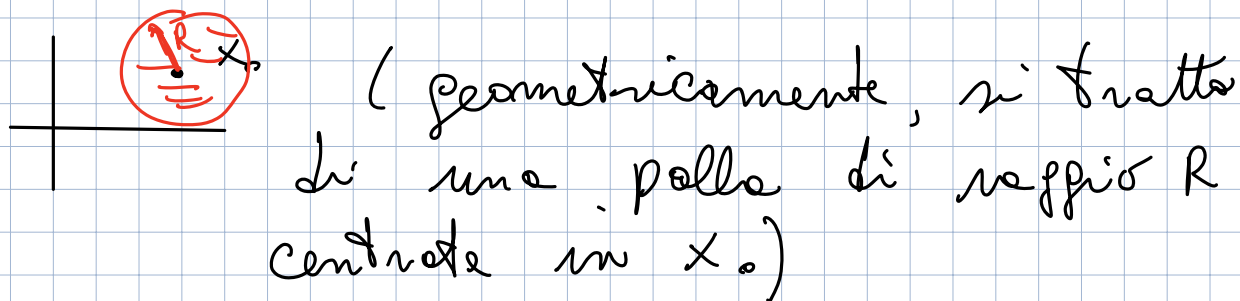 R x₀
( geometricamente, si tratta
di una palla di raggio R
centrata in x₀)